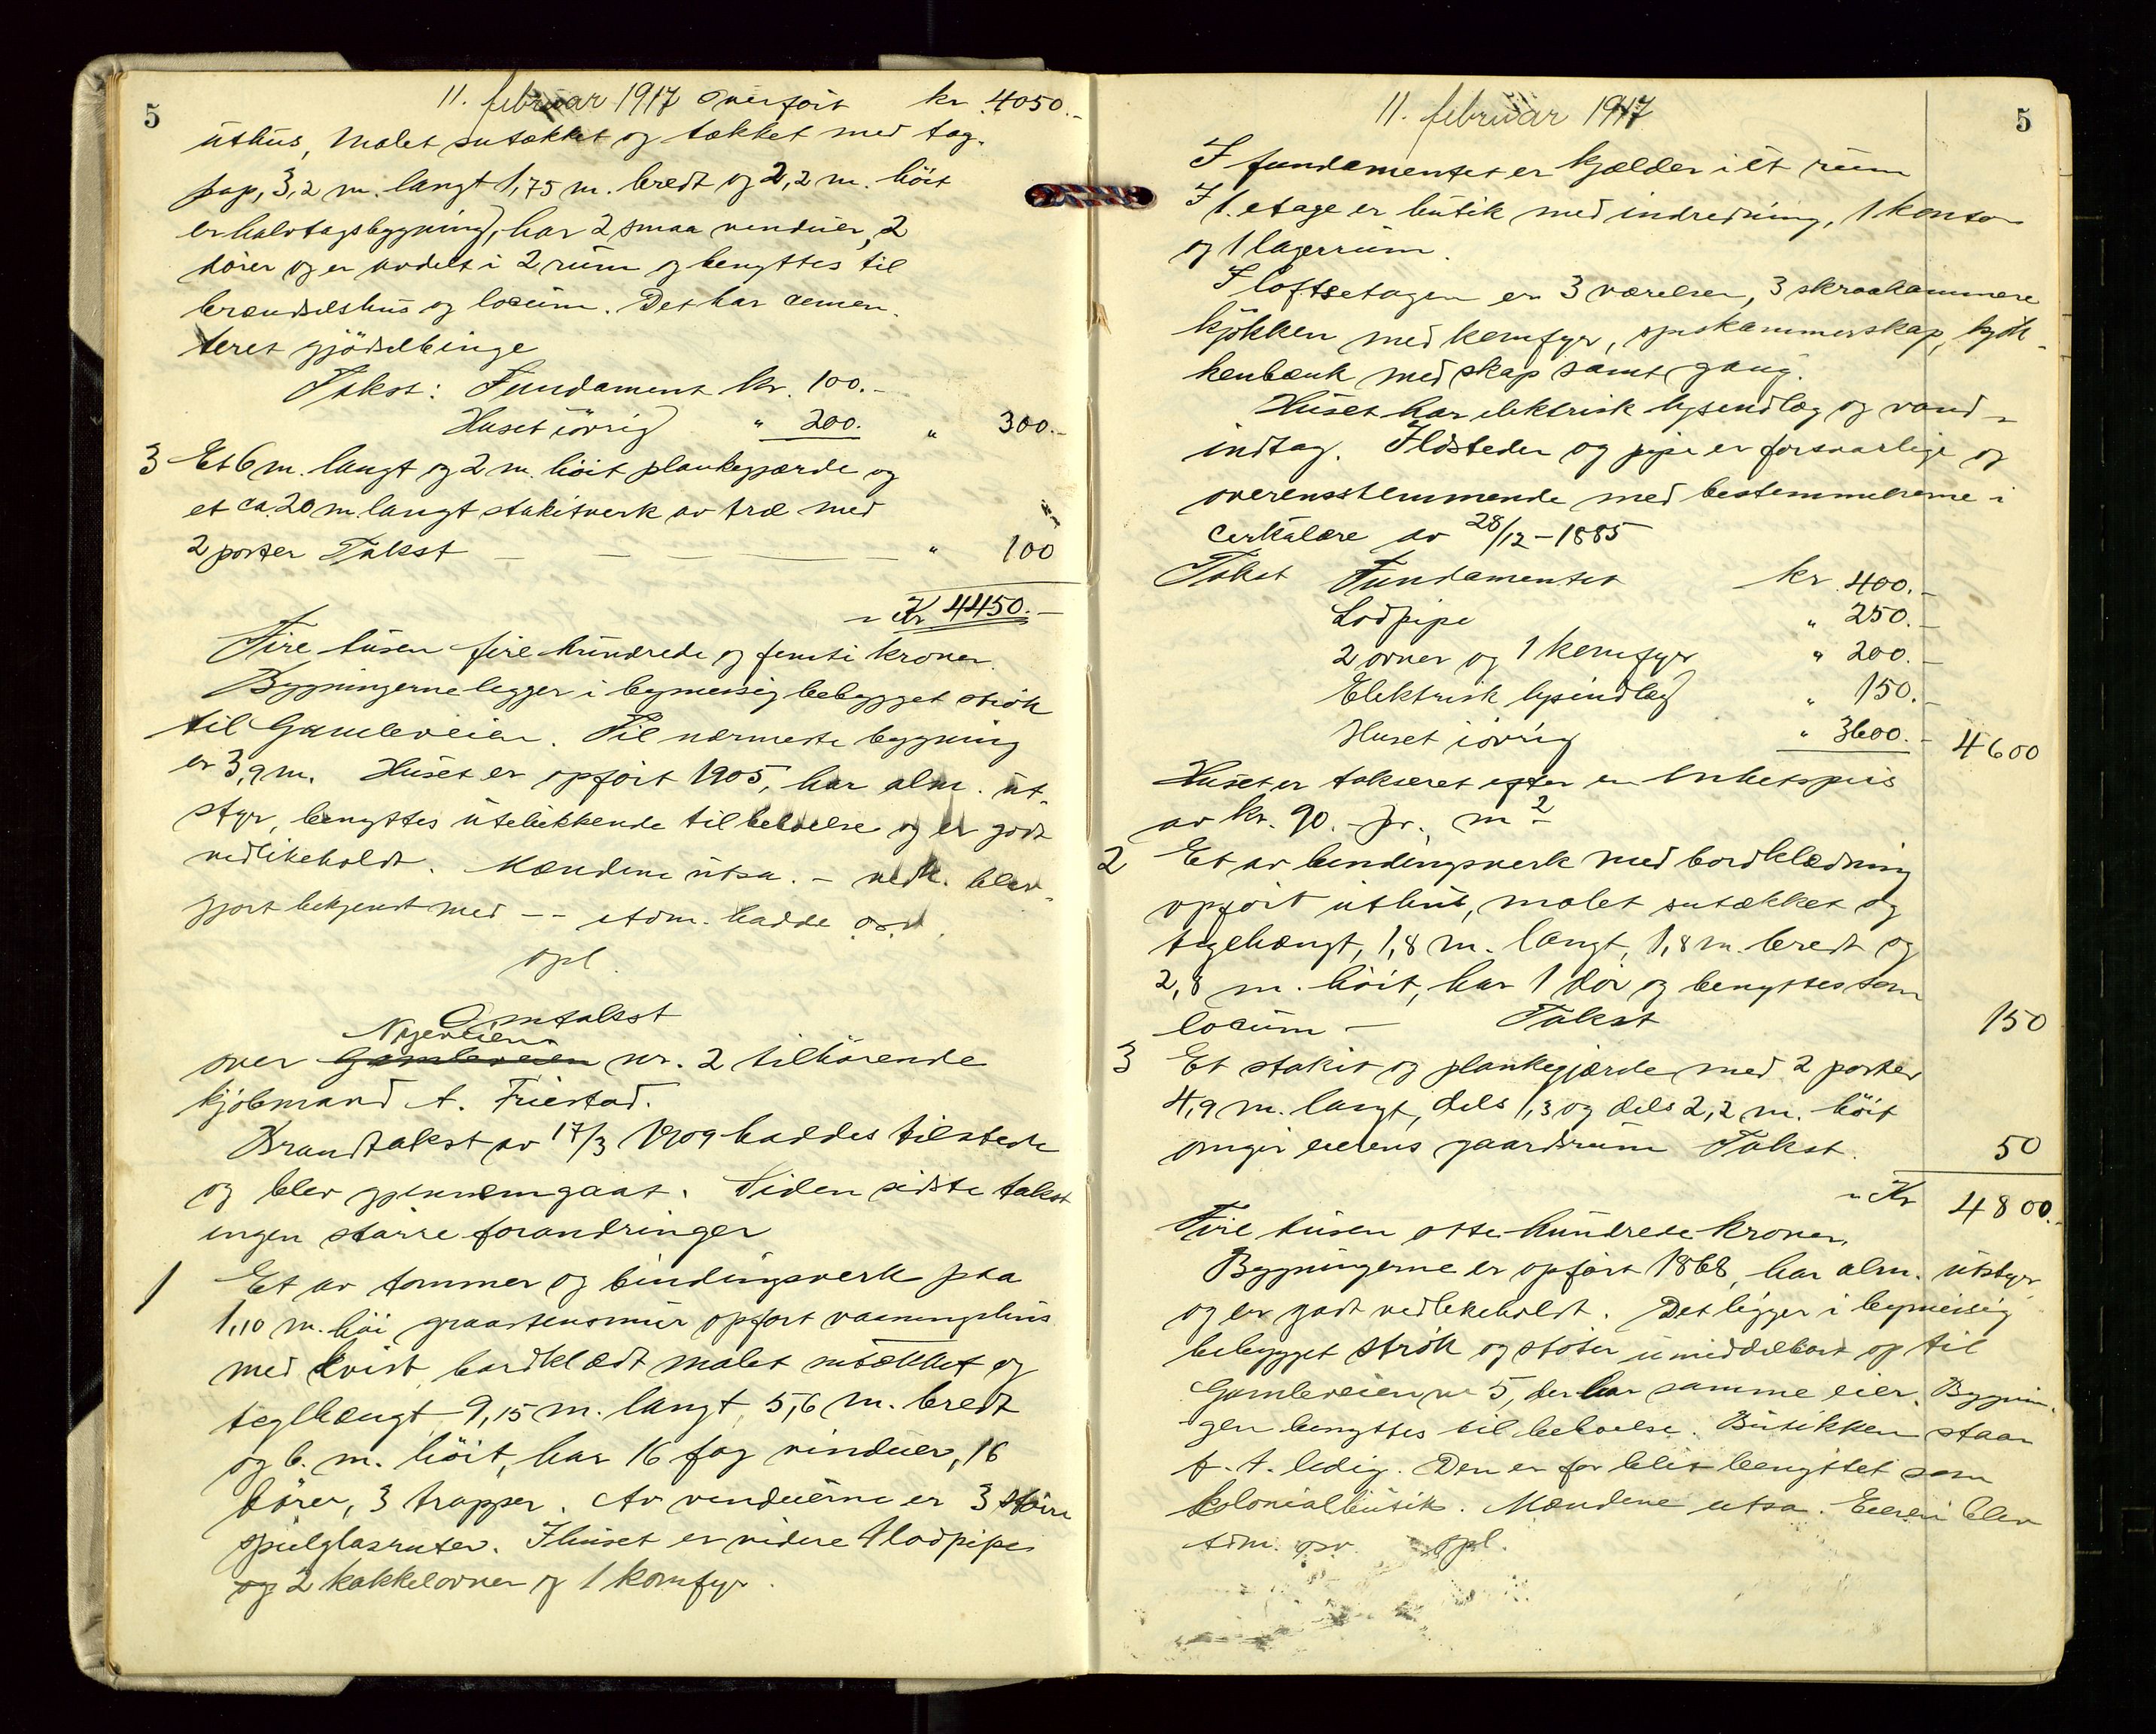 5
11. februar 1917 Overfört kr. 4050.-
uthus, malet sutækket og tækket med tag-
pap, 3,2 m. langt 1,75 m. bredt og 2,2 m. höit
er halvtagsbygning, har 2 smaa vinduer, 2
dörer og er avdelt i 2 rum og benyttes til
brændselshus og locum. Det har cemen-
teret gjödselbinge
Takst: Fundament kr. 100.-
Huset iövrig " 200. " 300.-
3 Et 6 m. langt og 2 m. höit plankegjærde og
et ca. 20 m langt stakitverk av træ med
2 porter Takst — — — " 100
Kr 4450.-
Fire tusen fire hundrede og femti kroner.
Bygningerne ligger i bymessig bebygget strök
til Gamleveien. Til nærmeste bygning
er 3,9 m. Huset er opfört 1905, har alm. ut-
styr, benyttes utelukkende til beboelse og er godt
vedlikeholdt. Mændene utsa. - vedk. blev
gjort bekjendt med -- etdm. hadde osv.
opl.
Omtakst
Nyeveien
over Gamleveien nr. 2 tilhörende
kjöbmand A. Friestad.
Brandtakst av 17/3 1909 haddes tilstede
og blev gjennemgaat. Siden sidste takst
ingen större forandringer
1 Et av tømmer og bindingsverk paa
1,10 m. höi graastensmur opfört vaaningshus
med kvist, bordklædt malet sutækket og
teglhængt 9,15 m. langt, 5,6 m. bredt
og 6. m. höit, har 16 fag vinduer, 16
dörer, 3 trapper. Av vinduerne er 3 större
speilglasruter. I huset er videre 1 lodpipe
og 2 kakkelovner og 1 komfyr.
11. februar 1917
5
I fundamentet er kjælder i ét rum
I 1. etage er butik med indredning, 1 kontor
og 1 lagerrum.
I loftsetagen er 3 værelser, 3 skraakammere
kjökken med komfyr, spiskammerskap, kjök-
kenbænk med skap samt gang.
Huset har elektrisk lysindlæg og vand-
indtag. Ildsteder og pipe er forsvarlige og
overensstemmende med bestemmelserne i
cirkulære av 28/12-1885
Takst Fundamentet kr. 400.-
Lodpipe " 250.-
2 ovner og 1 komfyr " 200.-
Elektrisk lysindlæg " 150.-
Huset iövrig " 3600.- 4600
Huset er takseret efter en enhetspris
av kr. 90.- pr. m2
2 Et av bindingsverk med bordklædning
opfört uthus, malet sutækket og
teglhængt, 1,8 m. langt, 1,8 m. bredt og
2,8 m. höit, har 1 dör og benyttes som
locum — Takst 150
3 Et stakit og plankegjærde med 2 porter
4,9 m. langt, dels 1,3 og dels 2,2 m. höit
omgir eierens gaardsrum Takst. 50
Kr 4800.-
Fire tusen otte hundrede kroner.
Bygningerne er opfört 1868, har alm. utstyr
og er godt vedlikeholdt. Det ligger i bymessig
bebygget strök og stöter umiddelbart op til
Gamleveien nr 5, der har samme eier. Bygnin-
gen benyttes til beboelse. Butikken staar
f. t. ledig. Den er för blit benyttet som
kolonialbutik. Mændene utsa. Eieren blev
tdm. osv. opl.